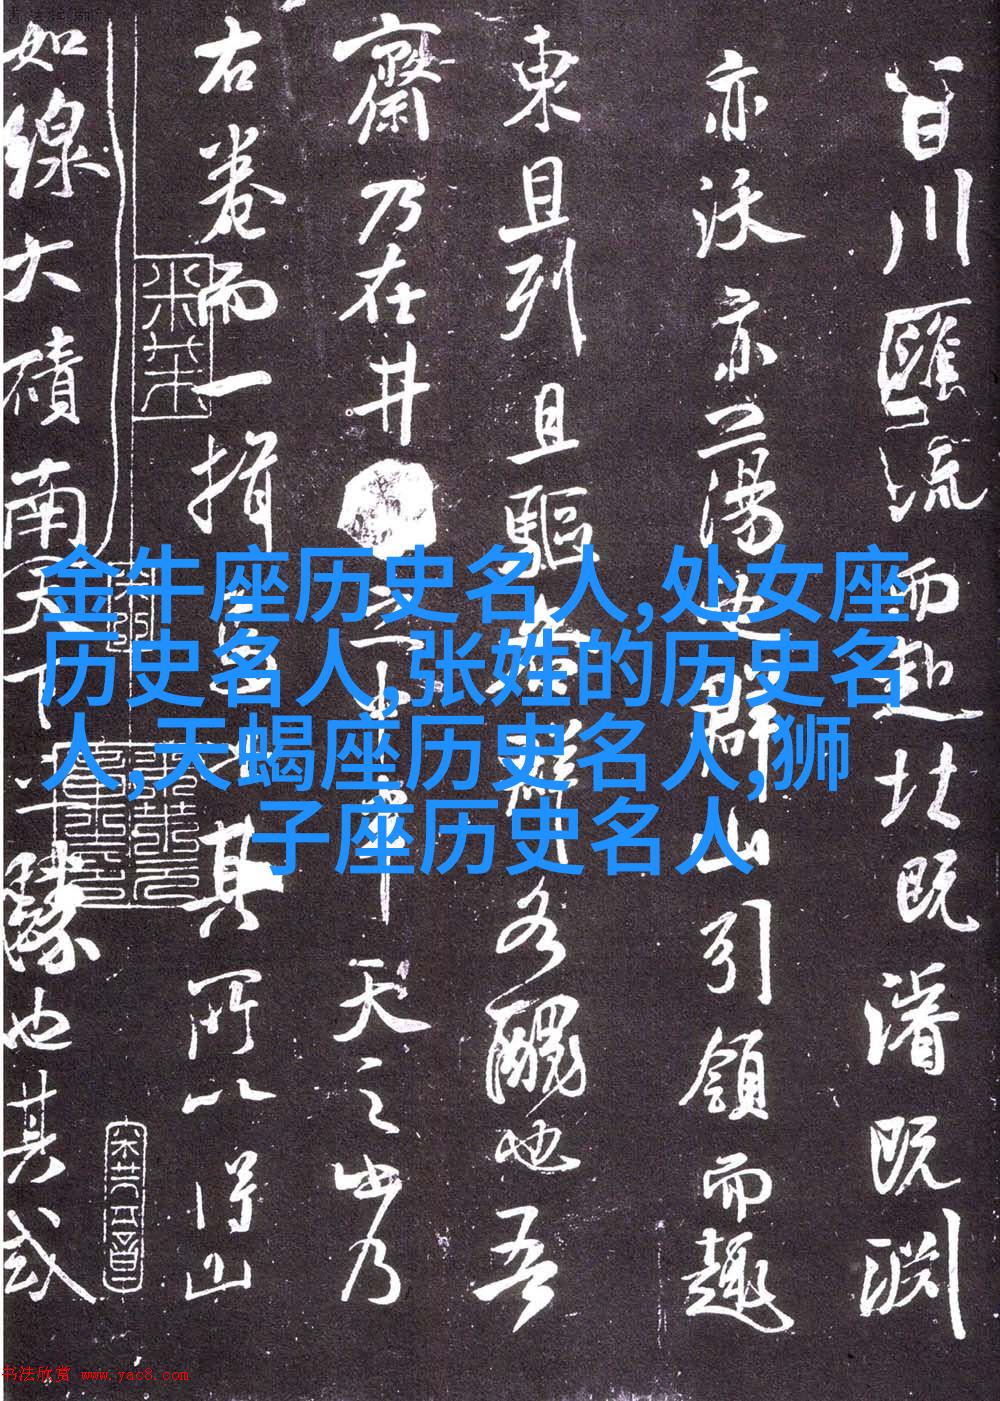 金牛座历史名人,处女座
历史名人,张姓的历史名
人,天蝎座历史名人,狮
子座历史名人
百川匯流而赴既濬既渊
亦沃亦蕩也群山引領而趣
東且列且驅各醜也吾
齋乃在井天之乃
右卷而一指其所以得山
如線大磧南天下一也其或
书法欣赏 www.yac8.com